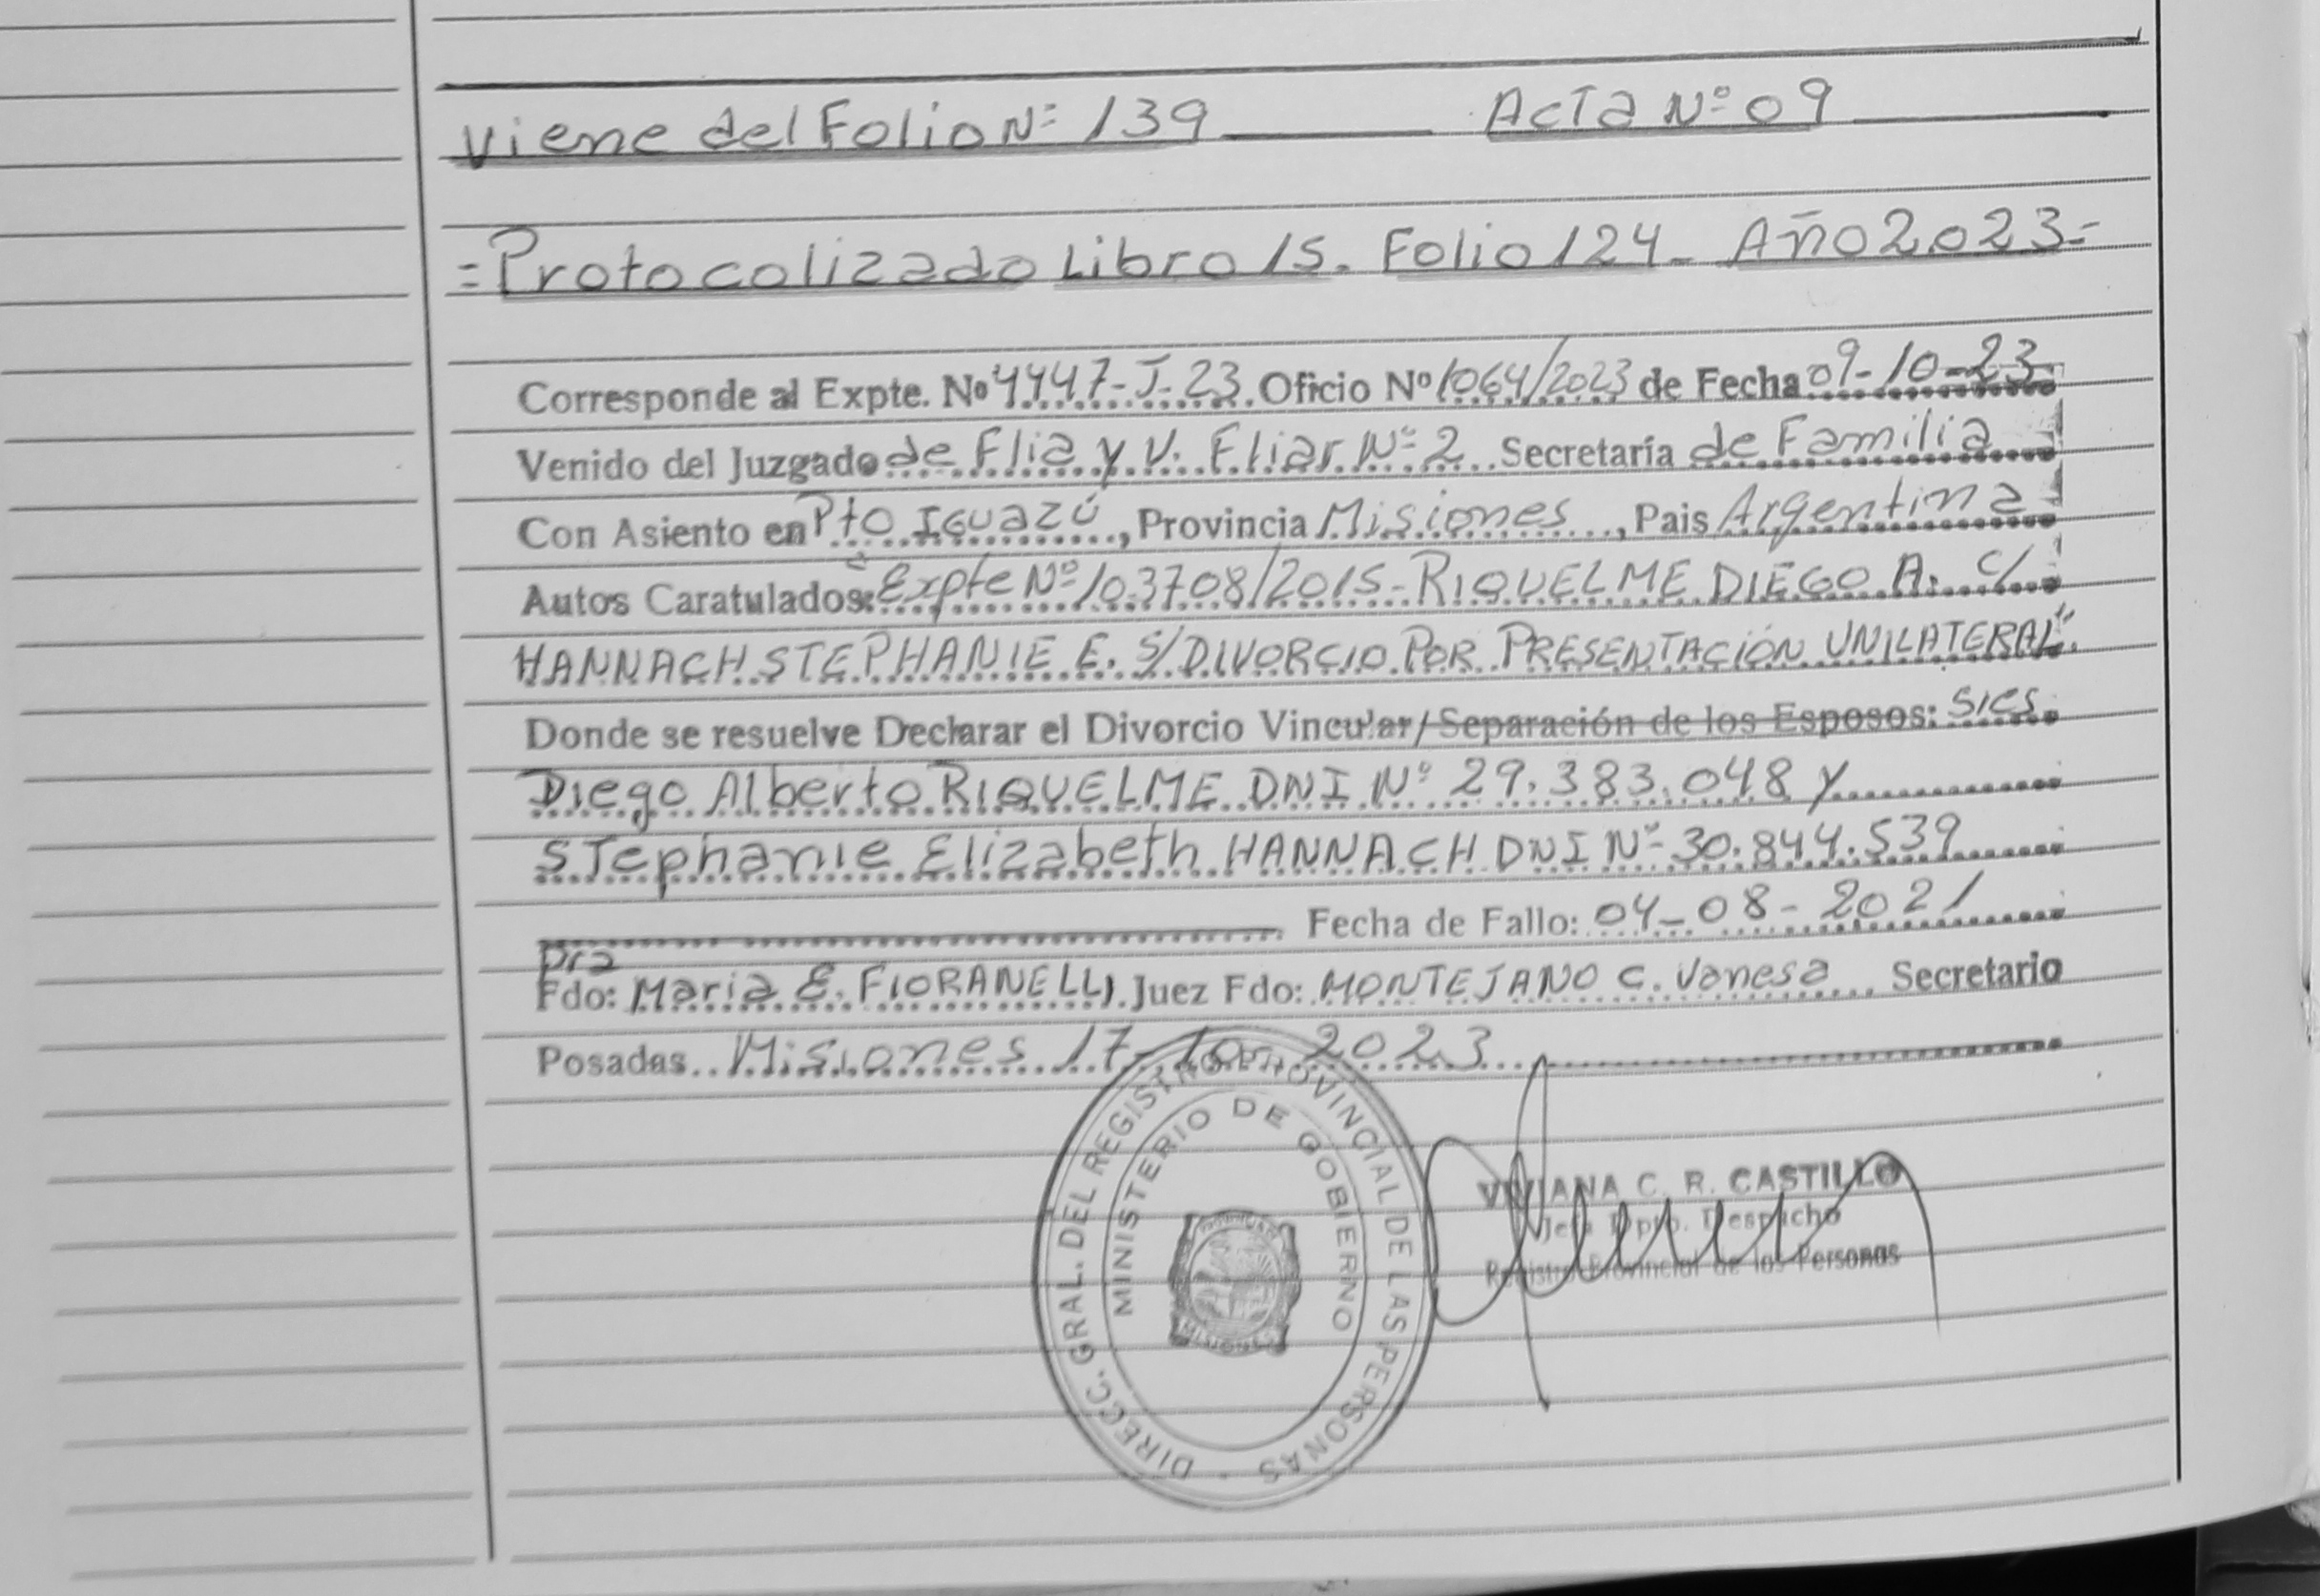 Viene del Folio Nº 139 Acta Nº 09
=Protocolizado Libro 15. Folio 124_ Año 2023=
Corresponde al Expte. Nº 4447-J-23. Oficio Nº 1064/2023 de Fecha 09-10-23
Venido del Juzgado de Flia y V. Fliar Nº 2 Secretaría de Familia
Con Asiento en Pto Iguazú, Provincia Misiones, Pais Argentina
Autos Caratulados: "Expte Nº 103708/2015-RIQUELME DIEGO A. C/
HANNACH STEPHANIE E. S/DIVORCIO POR PRESENTACIÓN UNILATERAL".
Donde se resuelve Declarar el Divorcio Vincular/Separación de los Esposos: Sres
Diego Alberto RIQUELME DNI Nº 29.383.048 y
Stephanie Elizabeth HANNACH DNI Nº 30.844.539
Fecha de Fallo: 04-08-2021
Dra
Fdo: Maria E. FIORANELLI. Juez Fdo: MONTEJANO C. Vanesa Secretario
Posadas Misiones 17-10-2023
DIRECC. GRAL. DEL REGISTRO PROVINCIAL DE LAS PERSONAS
MINISTERIO DE GOBIERNO
MISIONES
VIVIANA C. R. CASTILLO
Jefa Dpto. Despacho
Registro Provincial de las Personas